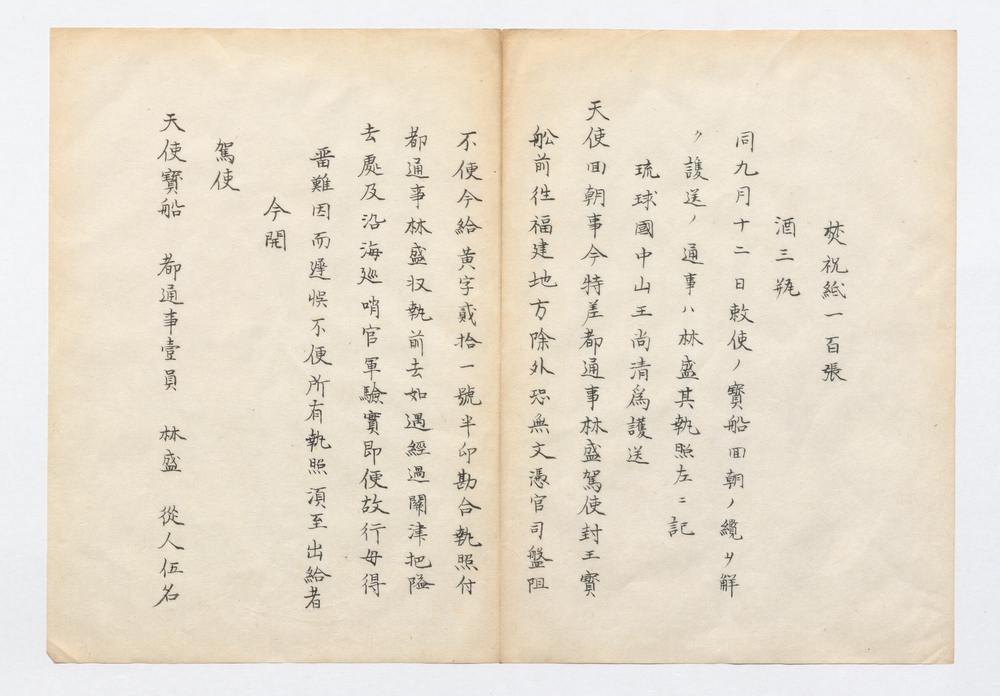 焚祝紙一百張
酒三瓶
同九月十二日敕使ノ寳船囬朝ノ纜ヲ觧
ク護送ノ通事ハ林盛其執照左ニ記
琉球國中山王尚清爲護送
天使囬朝事今特差都通事林盛駕使封王寳
舩前徃福建地方除外恐無文憑官司盤阻
不便今給黄字貳拾一號半印勘合執照付
都通事林盛収執前去如遇經過關津把隘
去處及沿海廵哨官軍驗實即便故行毋得
畨難因而遲悞不便所有執照湏至出給者
今開
駕使
天使寳船 都通事壹員 林盛 從人伍名